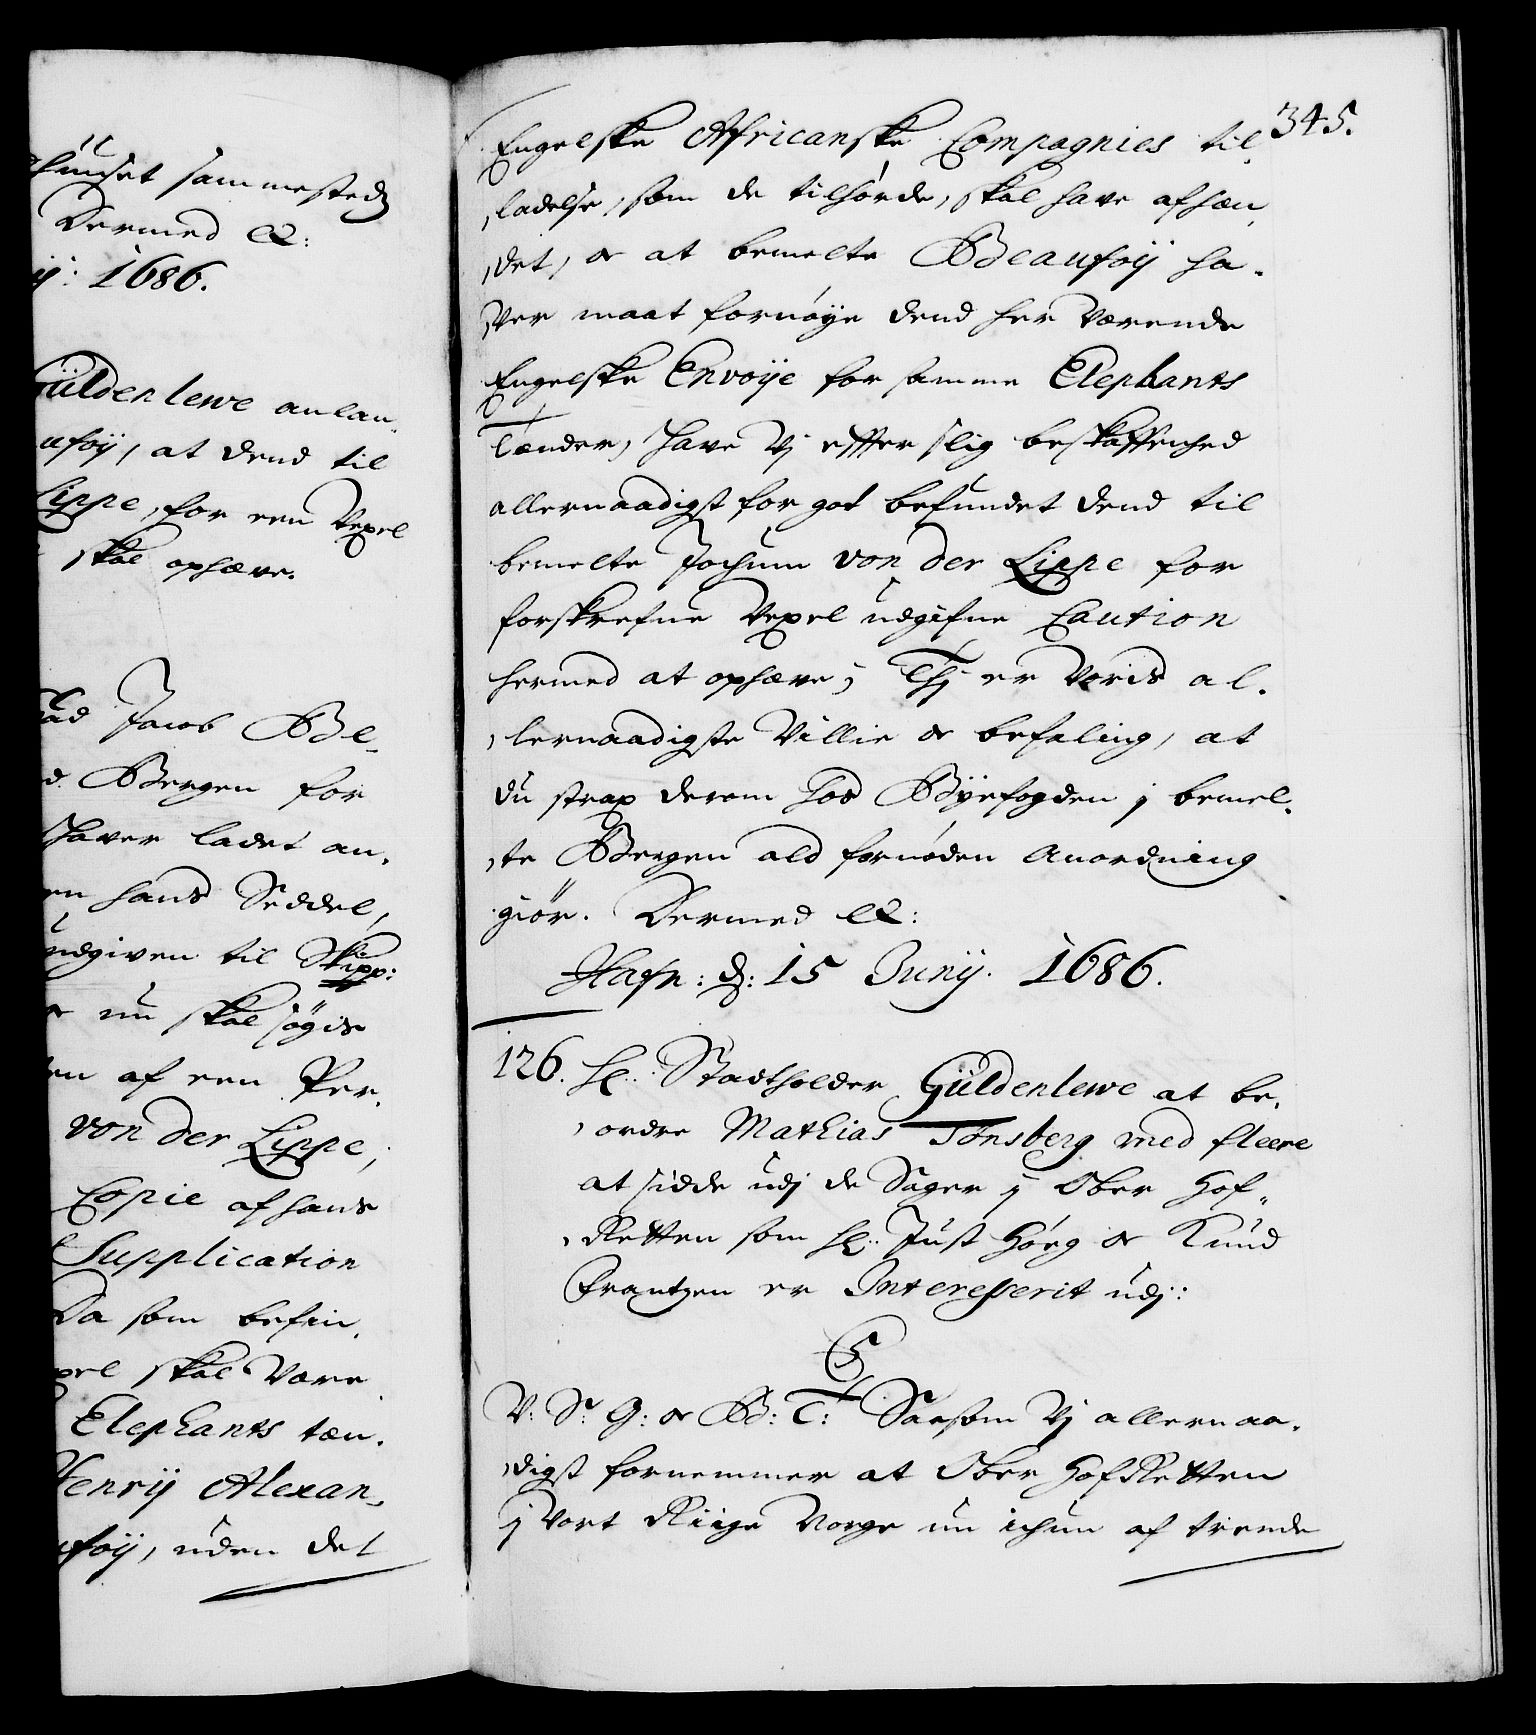 huuset sammesteds
Dermed etc:
ij: 1686.
Güldenlewe anlan
ufoÿ, at dend til
Lippe, for een Vexel
skal ophæve.
Jacob Be
Bergen for
haver ladet an
hans Seddel,
udgiven til Skipp:
nu skal søgis
af een Per
von der Lippe,
Copie af hans
Supplication
Da som befin
skal være
Elephants tæn
Henrÿ Alexan
ufoÿ, uden det
345.
Engelske Africanske Compagnies til
ladelse, som de tilhørde, skal have afhæn
det, og at bemelte Beaufoÿ ha
ver maat fornøye dend her værende
Engelske Envoÿe for samme Elephants
Tænder, have Vj efter slig beskaffenhed
allernaadigst for got befundet dend til
bemelte Jochum von der Lippe for
forskrefne Vexel udgifne Caution
hermed at ophæve; Thj er Voris al
lernaadigste Villie og befaling, at
du strax derom hos Bÿefogden j bemel
te Bergen ald fornøden Anordning
giør. Dermed etc:
Hafn: d: 15 Junij. 1686.
126. Hr: Stadtholder Güldenlewe at be
ordre Mathias Tønsberg med fleere
at sidde udj de Sager j Ober Hof
Retten som Hr: Just Høeg og Knud
Frantzen er Interesserit udj:
C5
V: S: G: og B: T: Saasom Vj allernaa
digst fornemmer at Ober HofRetten
j Vort Riige Norge nu ichun af trende